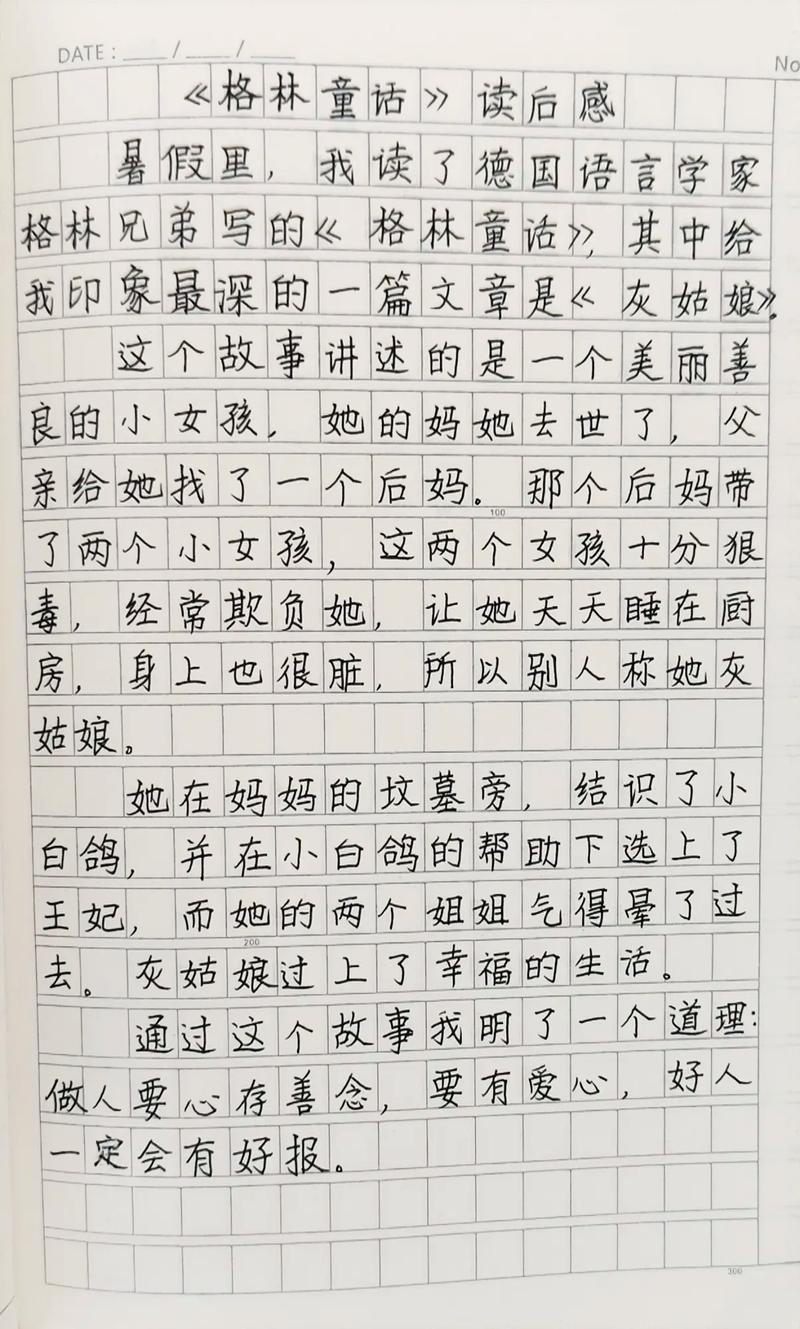 DATE: ___/___/___
No
《格林童话》读后感
暑假里，我读了德国语言学家
格林兄弟写的《格林童话》，其中给
我印象最深的一篇文章是《灰姑娘》。
这个故事讲述的是一个美丽善
良的小女孩，她的妈她去世了，父
亲给她找了一个后妈。那个后妈带
100
了两个小女孩，这两个女孩十分狠
毒，经常欺负她，让她天天睡在厨
房，身上也很脏，所以别人称她灰
姑娘。
她在妈妈的坟墓旁，结识了小
白鸽，并在小白鸽的帮助下选上了
王妃，而她的两个姐姐气得晕了过
200
去。灰姑娘过上了幸福的生活。
通过这个故事我明了一个道理：
做人要心存善念，要有爱心，好人
一定会有好报。
300